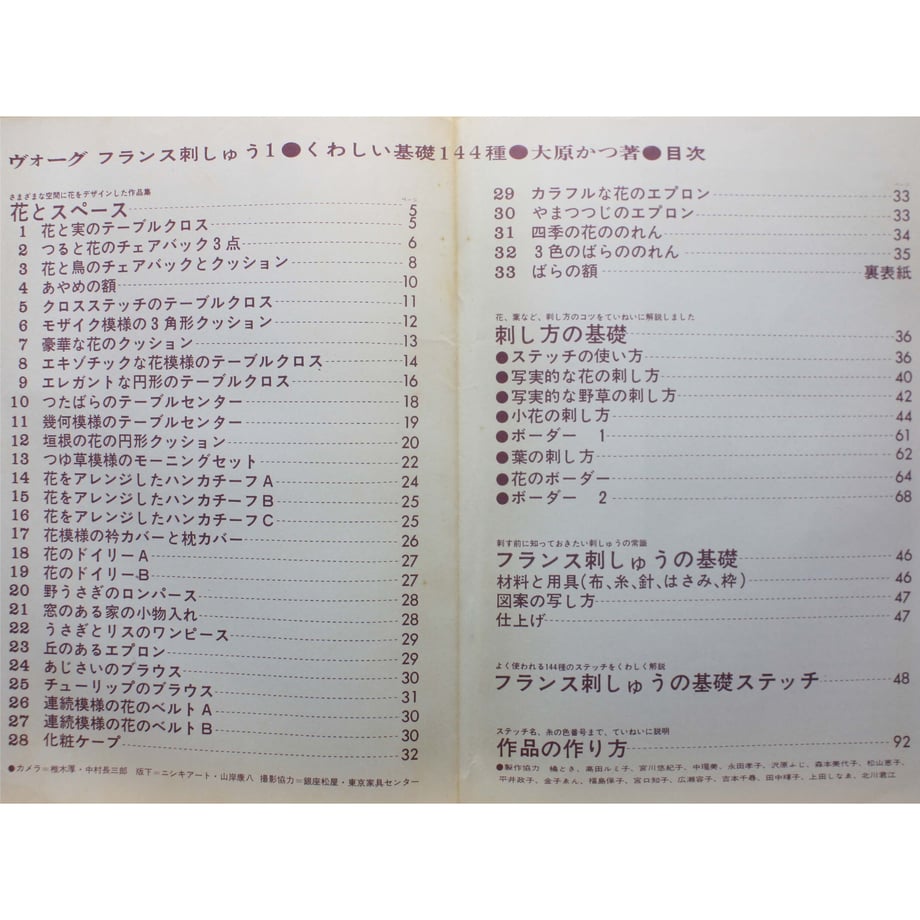 ヴォーグ フランス刺しゅう1●くわしい基礎144種●大原かつ著●目次
さまざまな空間に花をデザインした作品集
花とスペース 5
1 花と実のテーブルクロス 5
2 つると花のチェアバック3点 6
3 花と鳥のチェアバックとクッション 8
4 あやめの額 10
5 クロスステッチのテーブルクロス 11
6 モザイク模様の3角形クッション 12
7 豪華な花のクッション 13
8 エキゾチックな花模様のテーブルクロス 14
9 エレガントな円形のテーブルクロス 16
10 つたばらのテーブルセンター 18
11 幾何模様のテーブルセンター 19
12 垣根の花の円形クッション 20
13 つゆ草模様のモーニングセット 22
14 花をアレンジしたハンカチーフA 24
15 花をアレンジしたハンカチーフB 25
16 花をアレンジしたハンカチーフC 25
17 花模様の衿カバーと枕カバー 26
18 花のドイリーA 27
19 花のドイリーB 27
20 野うさぎのロンパース 28
21 窓のある家の小物入れ 28
22 うさぎとリスのワンピース 29
23 丘のあるエプロン 29
24 あじさいのブラウス 30
25 チューリップのブラウス 31
26 連続模様の花のベルトA 30
27 連続模様の花のベルトB 30
28 化粧ケープ 32
●カメラ=椎木厚・中村長三郎 版下=ニシキアート・山岸康八 撮影協力=銀座松屋・東京家具センター
29 カラフルな花のエプロン 33
30 やまつつじのエプロン 33
31 四季の花ののれん 34
32 3色のばらののれん 35
33 ばらの額 裏表紙
花、葉など、刺し方のコツをていねいに解説しました
刺し方の基礎 36
●ステッチの使い方 36
●写実的な花の刺し方 40
●写実的な野草の刺し方 42
●小花の刺し方 44
●ボーダー 1 61
●葉の刺し方 62
●花のボーダー 64
●ボーダー 2 68
刺す前に知っておきたい刺しゅうの常識
フランス刺しゅうの基礎 46
材料と用具(布、糸、針、はさみ、枠) 46
図案の写し方 47
仕上げ 47
よく使われる144種のステッチをくわしく解説
フランス刺しゅうの基礎ステッチ 48
ステッチ名、糸の色番号まで、ていねいに説明
作品の作り方 92
●製作協力 とき、高田ルミ子、宮川悠紀子、中理美、永田孝子、沢原ふじ、森本美代子、松山恵子、
平井政子、金子ゑん、福島保子、宮口知子、広瀬容子、吉本千尋、田中暉子、上田しなゑ、北川君江